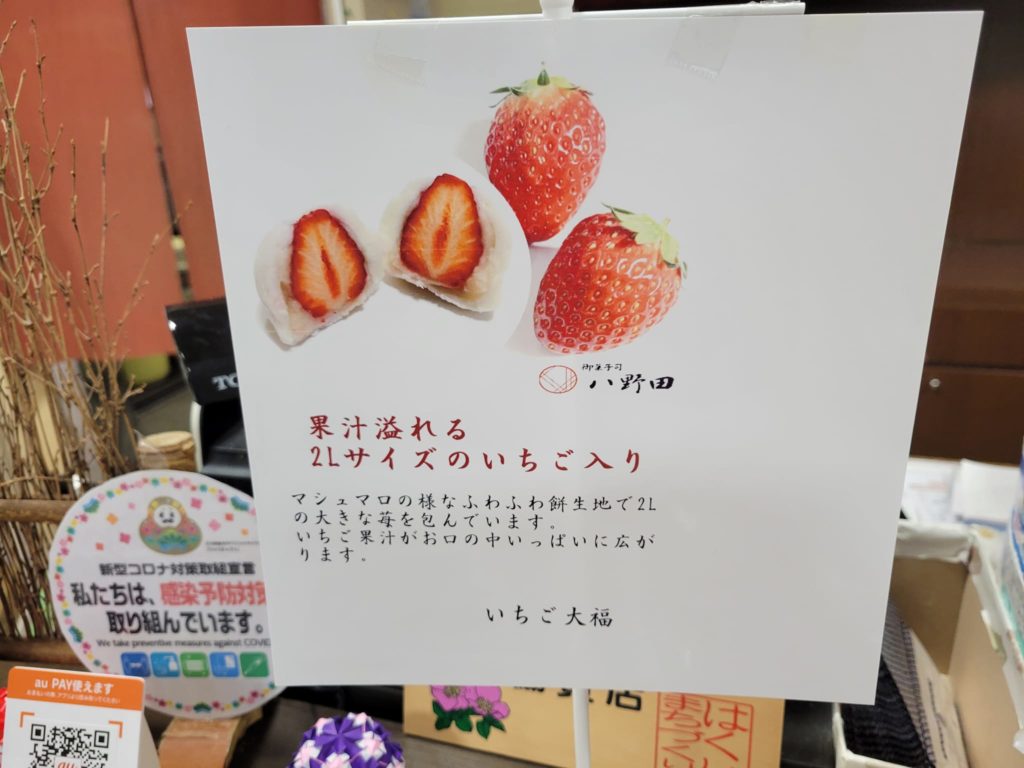 御菓子司
八野田
果汁溢れる
2Lサイズのいちご入り
マシュマロの様なふわふわ餅生地で2L
の大きな苺を包んでいます。
いちご果汁がお口の中いっぱいに広が
ります。
いちご大福
新型コロナ対策取組宣言
私たちは、感染予防対策
取り組んでいます。
We take preventive measures against COVID
au PAY使えます
au
はく
まちづくり
店